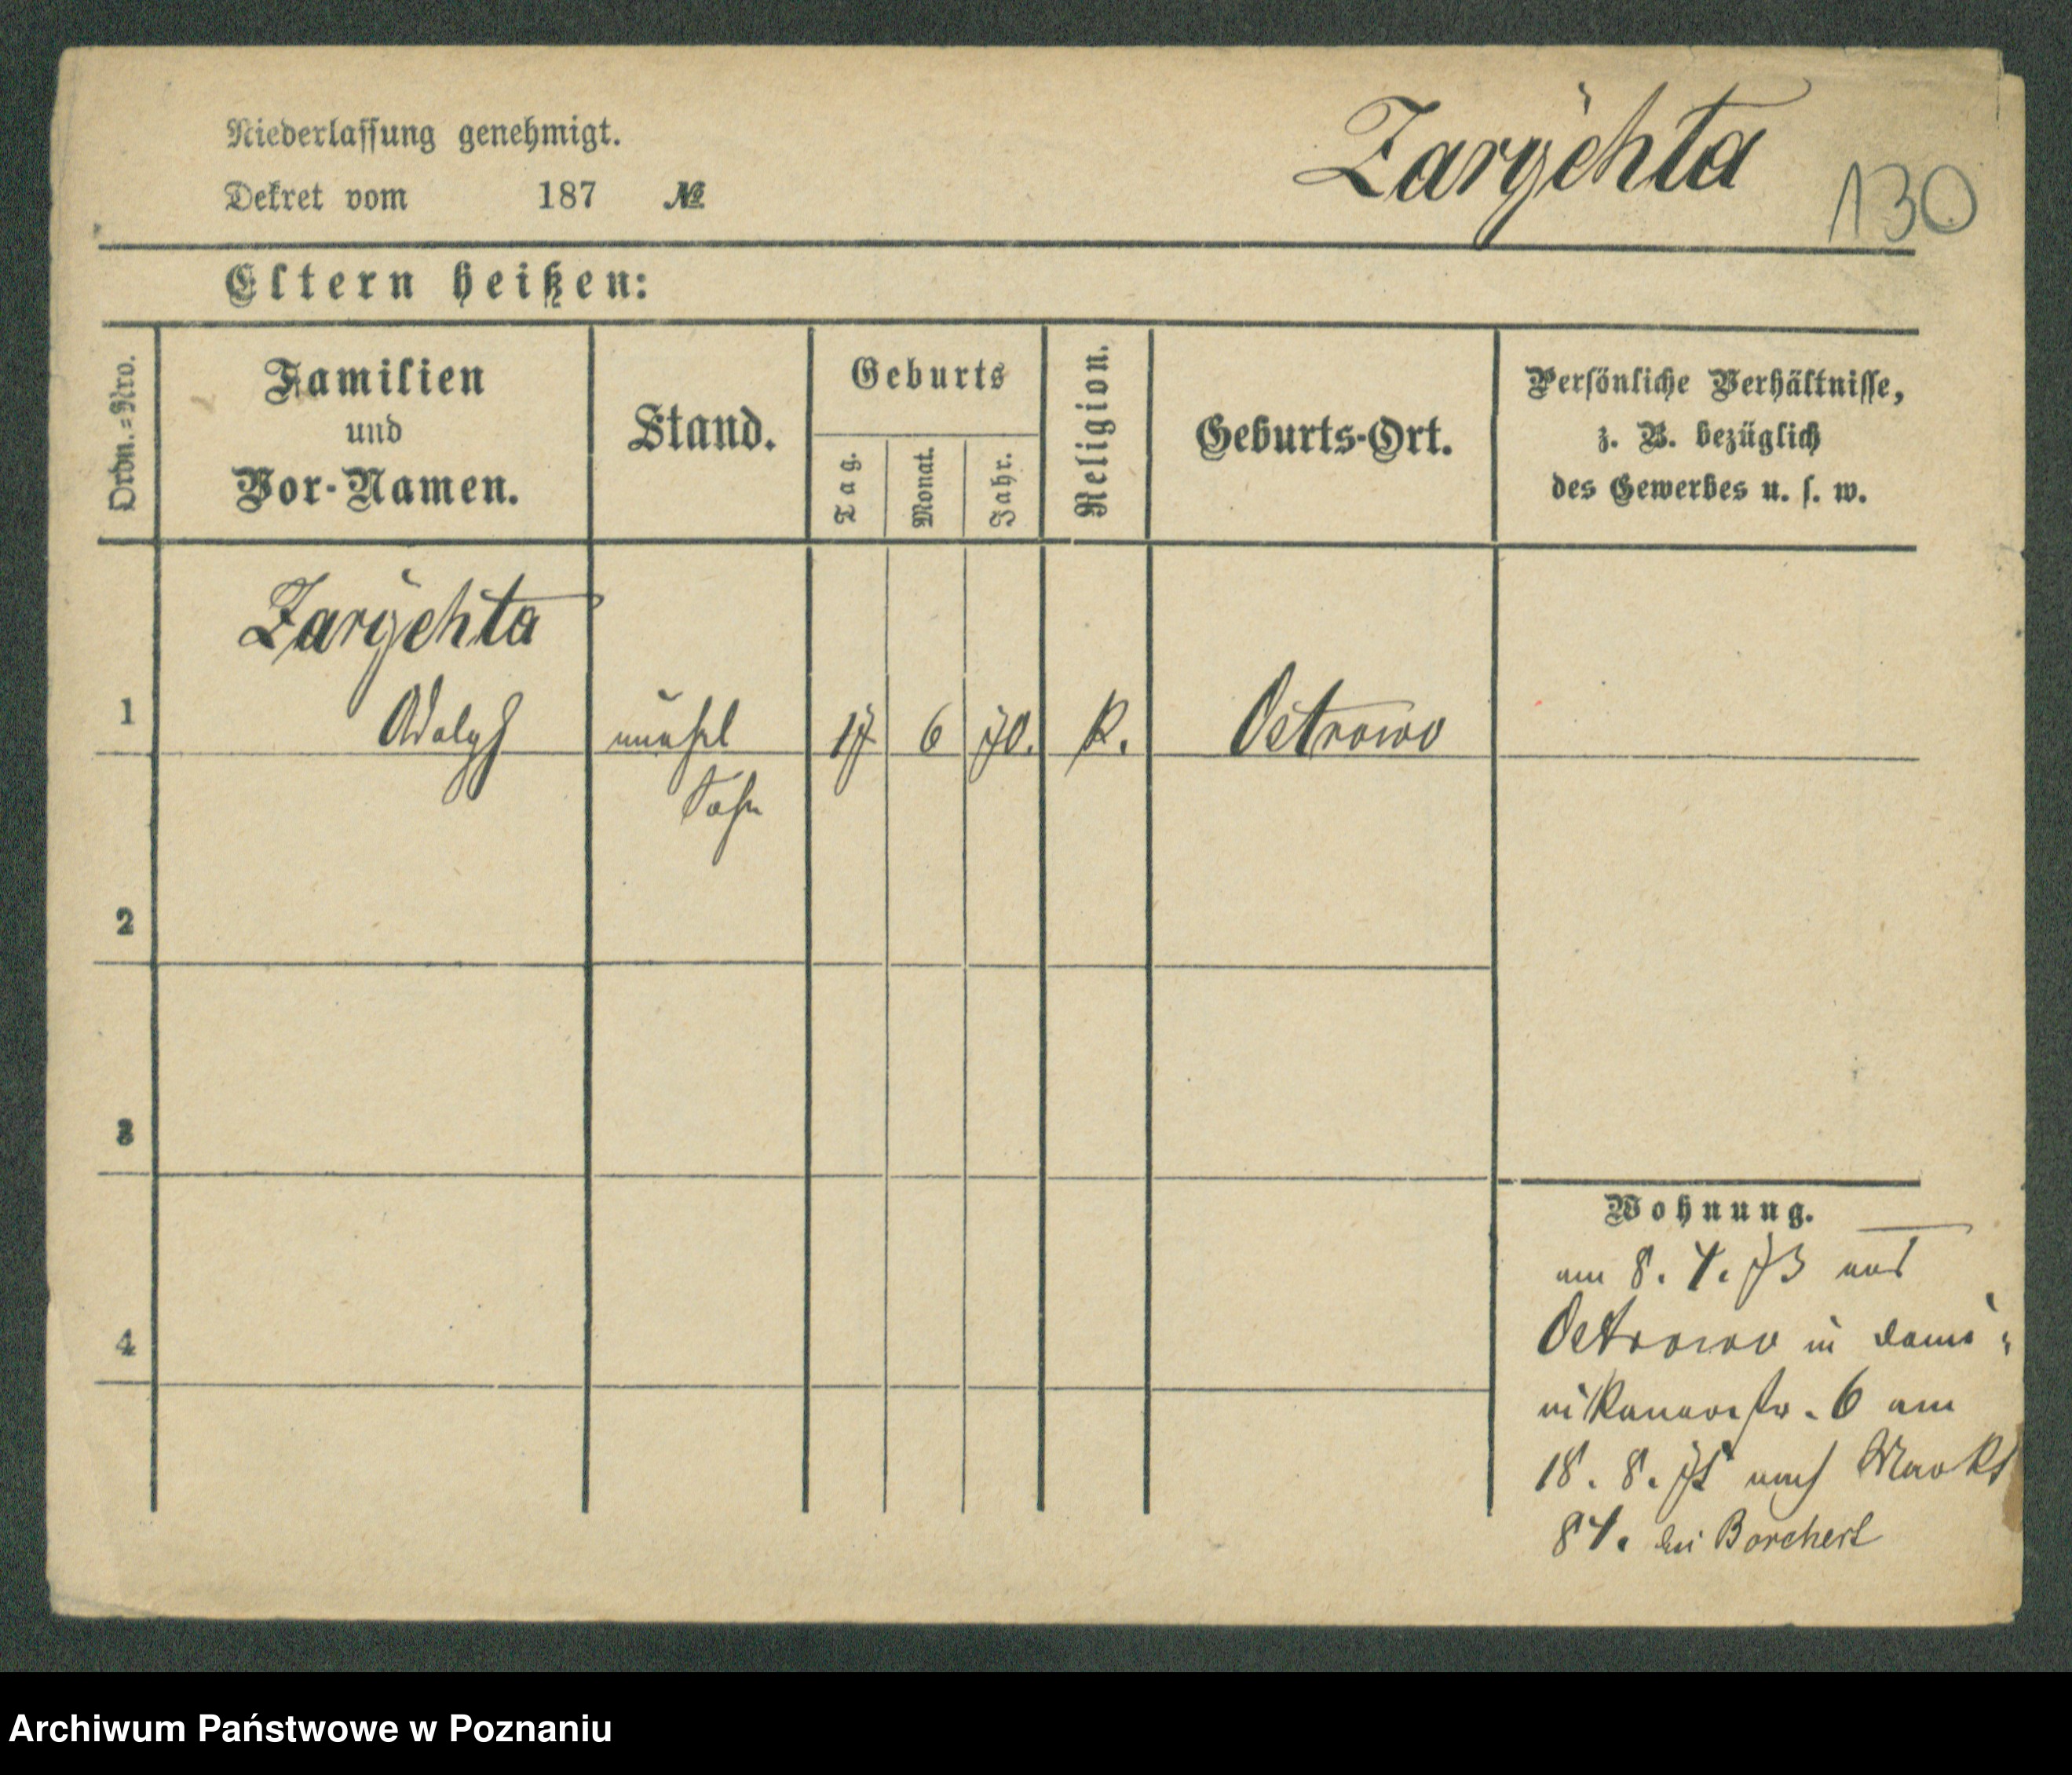 Niederlassung genehmigt.
Dekret vom 187 №
Zarychta
130
Eltern heißen:
Ordn.=Nro.
Familien
und
Vor-Namen.
Stand.
Geburts
Tag.
Monat.
Jahr.
Religion.
Geburts-Ort.
Persönliche Verhältnisse,
z. B. bezüglich
des Gewerbes u. s. w.
Zarychta
1 Adolph unehel 17 6 70. K. Ostrowo
Sohn
2
3
4
Wohnung.
am 8. 4. 73 aus
Ostrowo in Domi-
nikanerstr. 6 am
18. 8. 75 nach Markt
84. bei Borchert
Archiwum Państwowe w Poznaniu